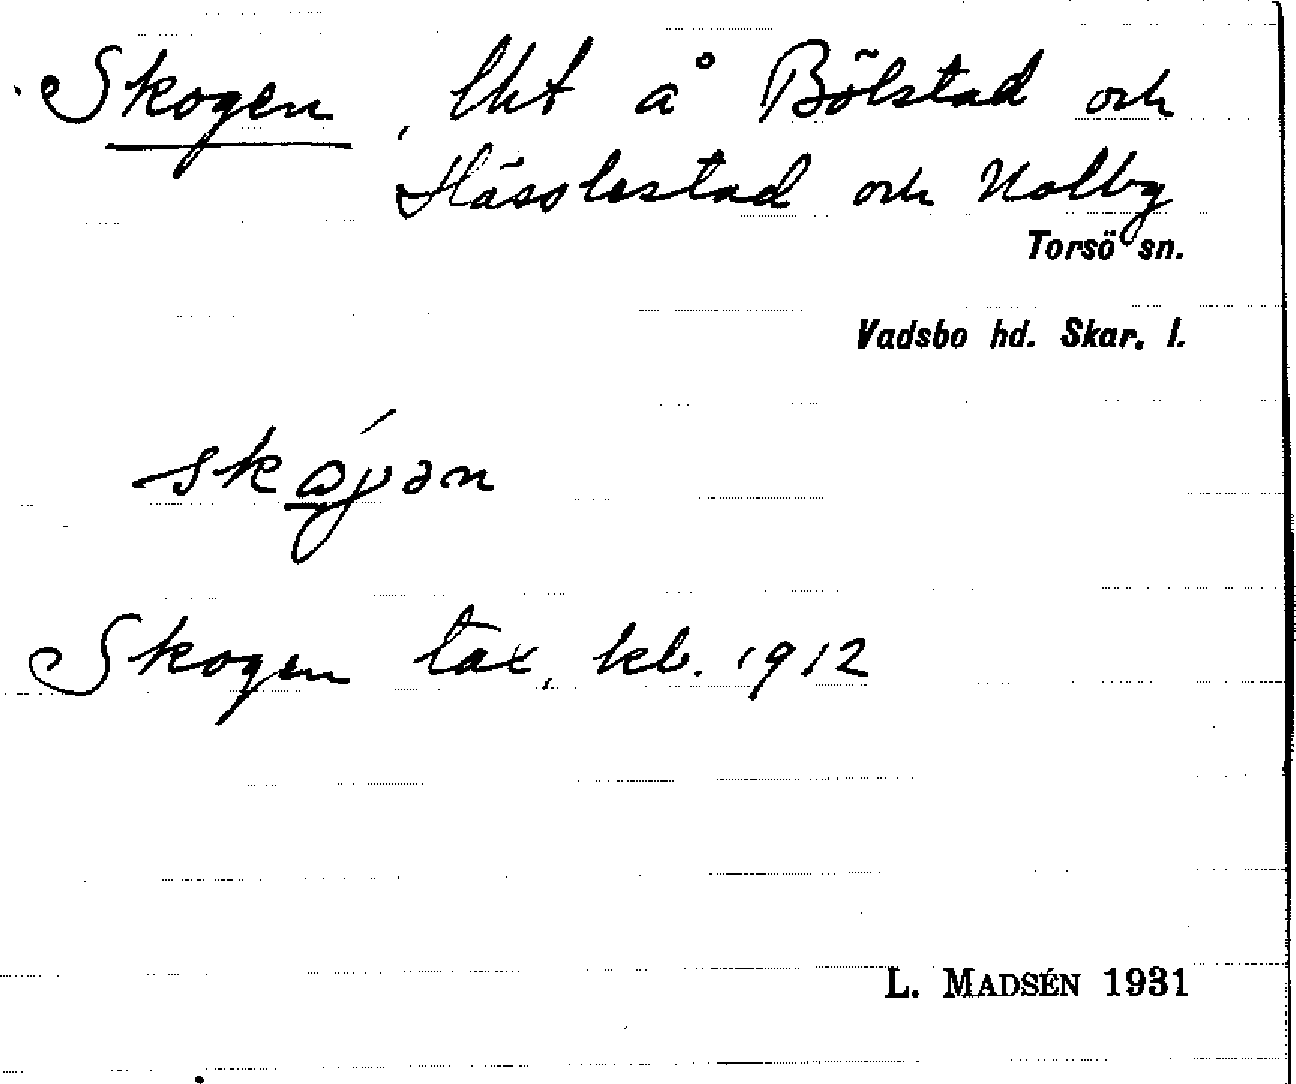 Skogen, lht å Bölstad och
Hässlestad och Nolby
Torsö sn.
Vadsbo hd. Skar. l.
Skogen tax. kb. 1912
L. MADSÉN 1931